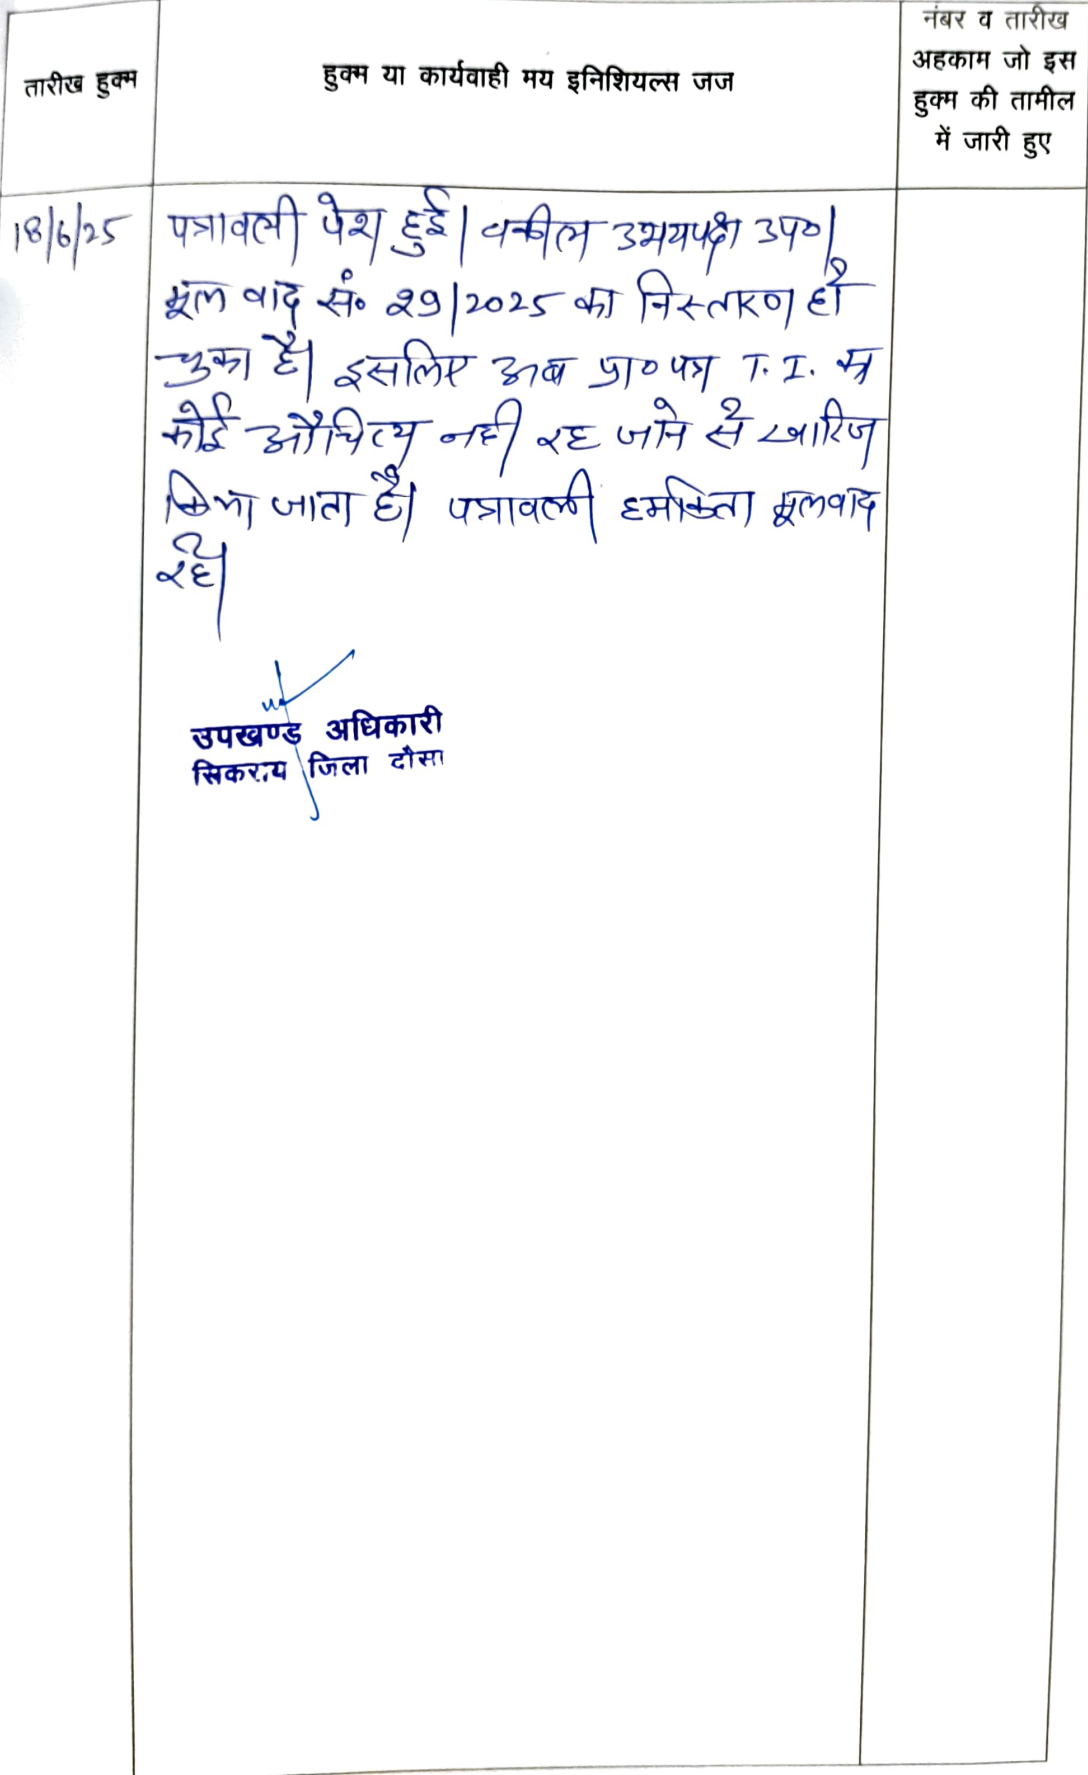 तारीख हुक्म
हुक्म या कार्यवाही मय इनिशियल्स जज
नंबर व तारीख
अहकाम जो इस
हुक्म की तामील
में जारी हुए
18/6/25
पत्रावली पेश हुई। वकील उभयपक्ष उप०।
मूल वाद सं० 29/2025 का निस्तारण हो
चुका है। इसलिए अब प्रा० पत्र T. I. का
कोई औचित्य नही रह जाने से खारिज
किया जाता है। पत्रावली हमकिता मूलवाद
रहे।
उपखण्ड अधिकारी
सिकराय जिला दौसा